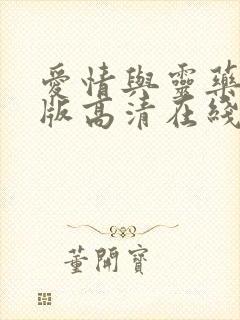 愛情與靈藥
版高清在綫
董開寶